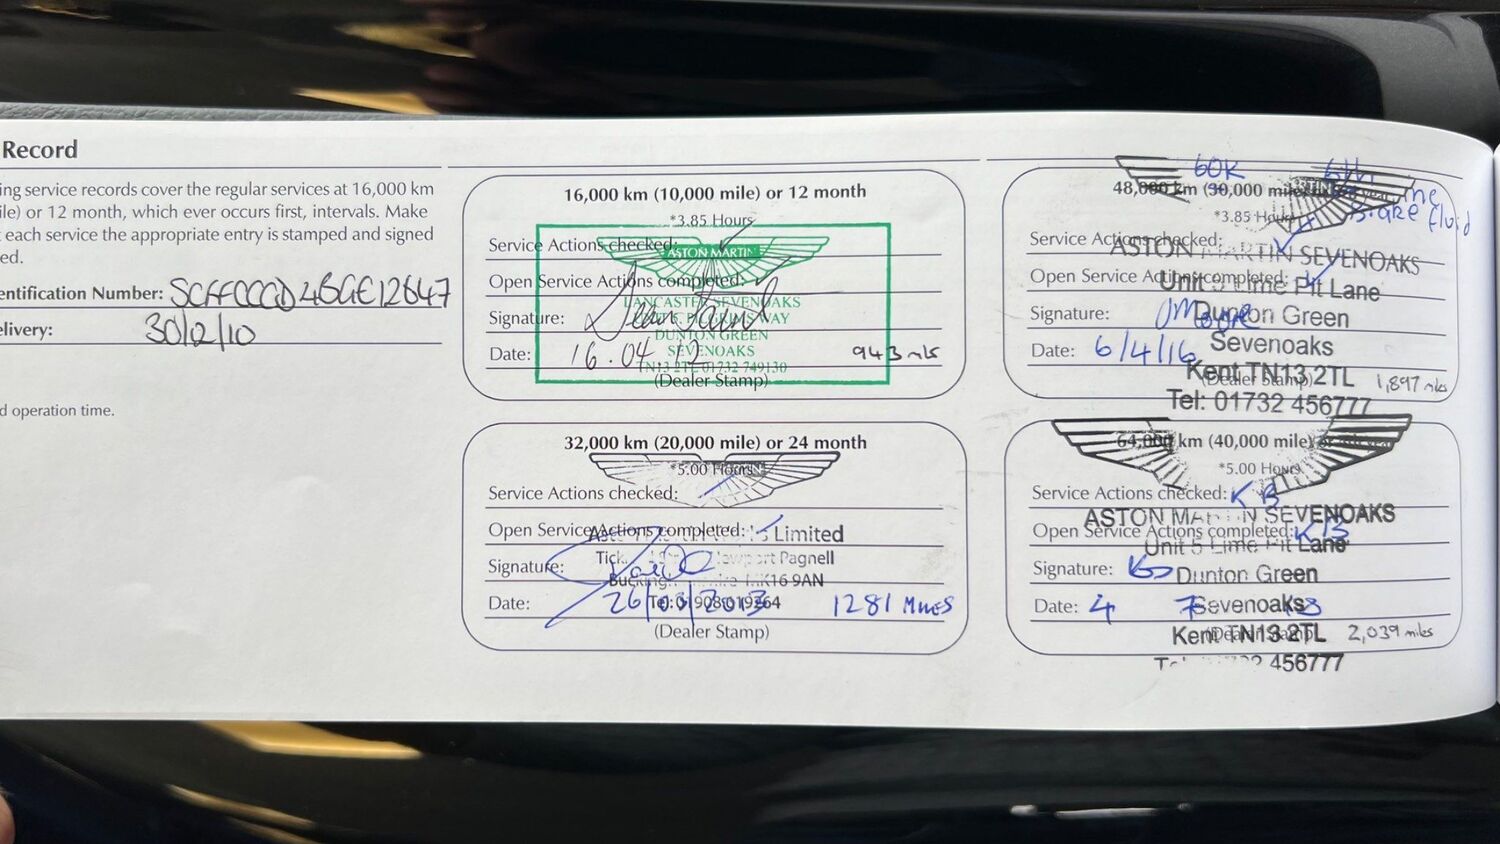 Record
ing service records cover the regular services at 16,000 km
ile) or 12 month, which ever occurs first, intervals. Make
each service the appropriate entry is stamped and signed
ed.
entification Number: SCFFCCCD4BGE12647
elivery: 30/2/10
d operation time.
16,000 km (10,000 mile) or 12 month
*3.85 Hours
Service Actions checked:
ASTON MARTIN
Open Service Actions completed:
LANCASTER SEVENOAKS
Signature:
WAY
DUNTON GREEN
SEVENOAKS
Date: 16.04.12 943 mls
TN13 2TL 01732 749130
(Dealer Stamp)
32,000 km (20,000 mile) or 24 month
*5.00 Hours
Service Actions checked:
Open Service Actions completed:
Limited
Signature:
Newport Pagnell
MK16 9AN
Date: 26/03/2013 1281 MILES
Tel: 01908 019264
(Dealer Stamp)
60K 6th
48,000 km (30,000 mile)
*3.85 Hours
Brake fluid
Service Actions checked:
ASTON MARTIN SEVENOAKS
Open Service Actions completed:
Unit 5 Lime Pit Lane
Signature:
Dunton Green
Date: 6/4/16
Sevenoaks
Kent TN13 2TL
(Dealer Stamp) 1,897 mls
Tel: 01732 456777
64,000 km (40,000 mile)
*5.00 Hours
Service Actions checked: KB
ASTON MARTIN SEVENOAKS
Open Service Actions completed: KB
Unit 5 Lime Pit Lane
Signature:
Dunton Green
Date: 4 7 18
Sevenoaks
Kent TN13 2TL
(Dealer Stamp) 2,039 miles
456777